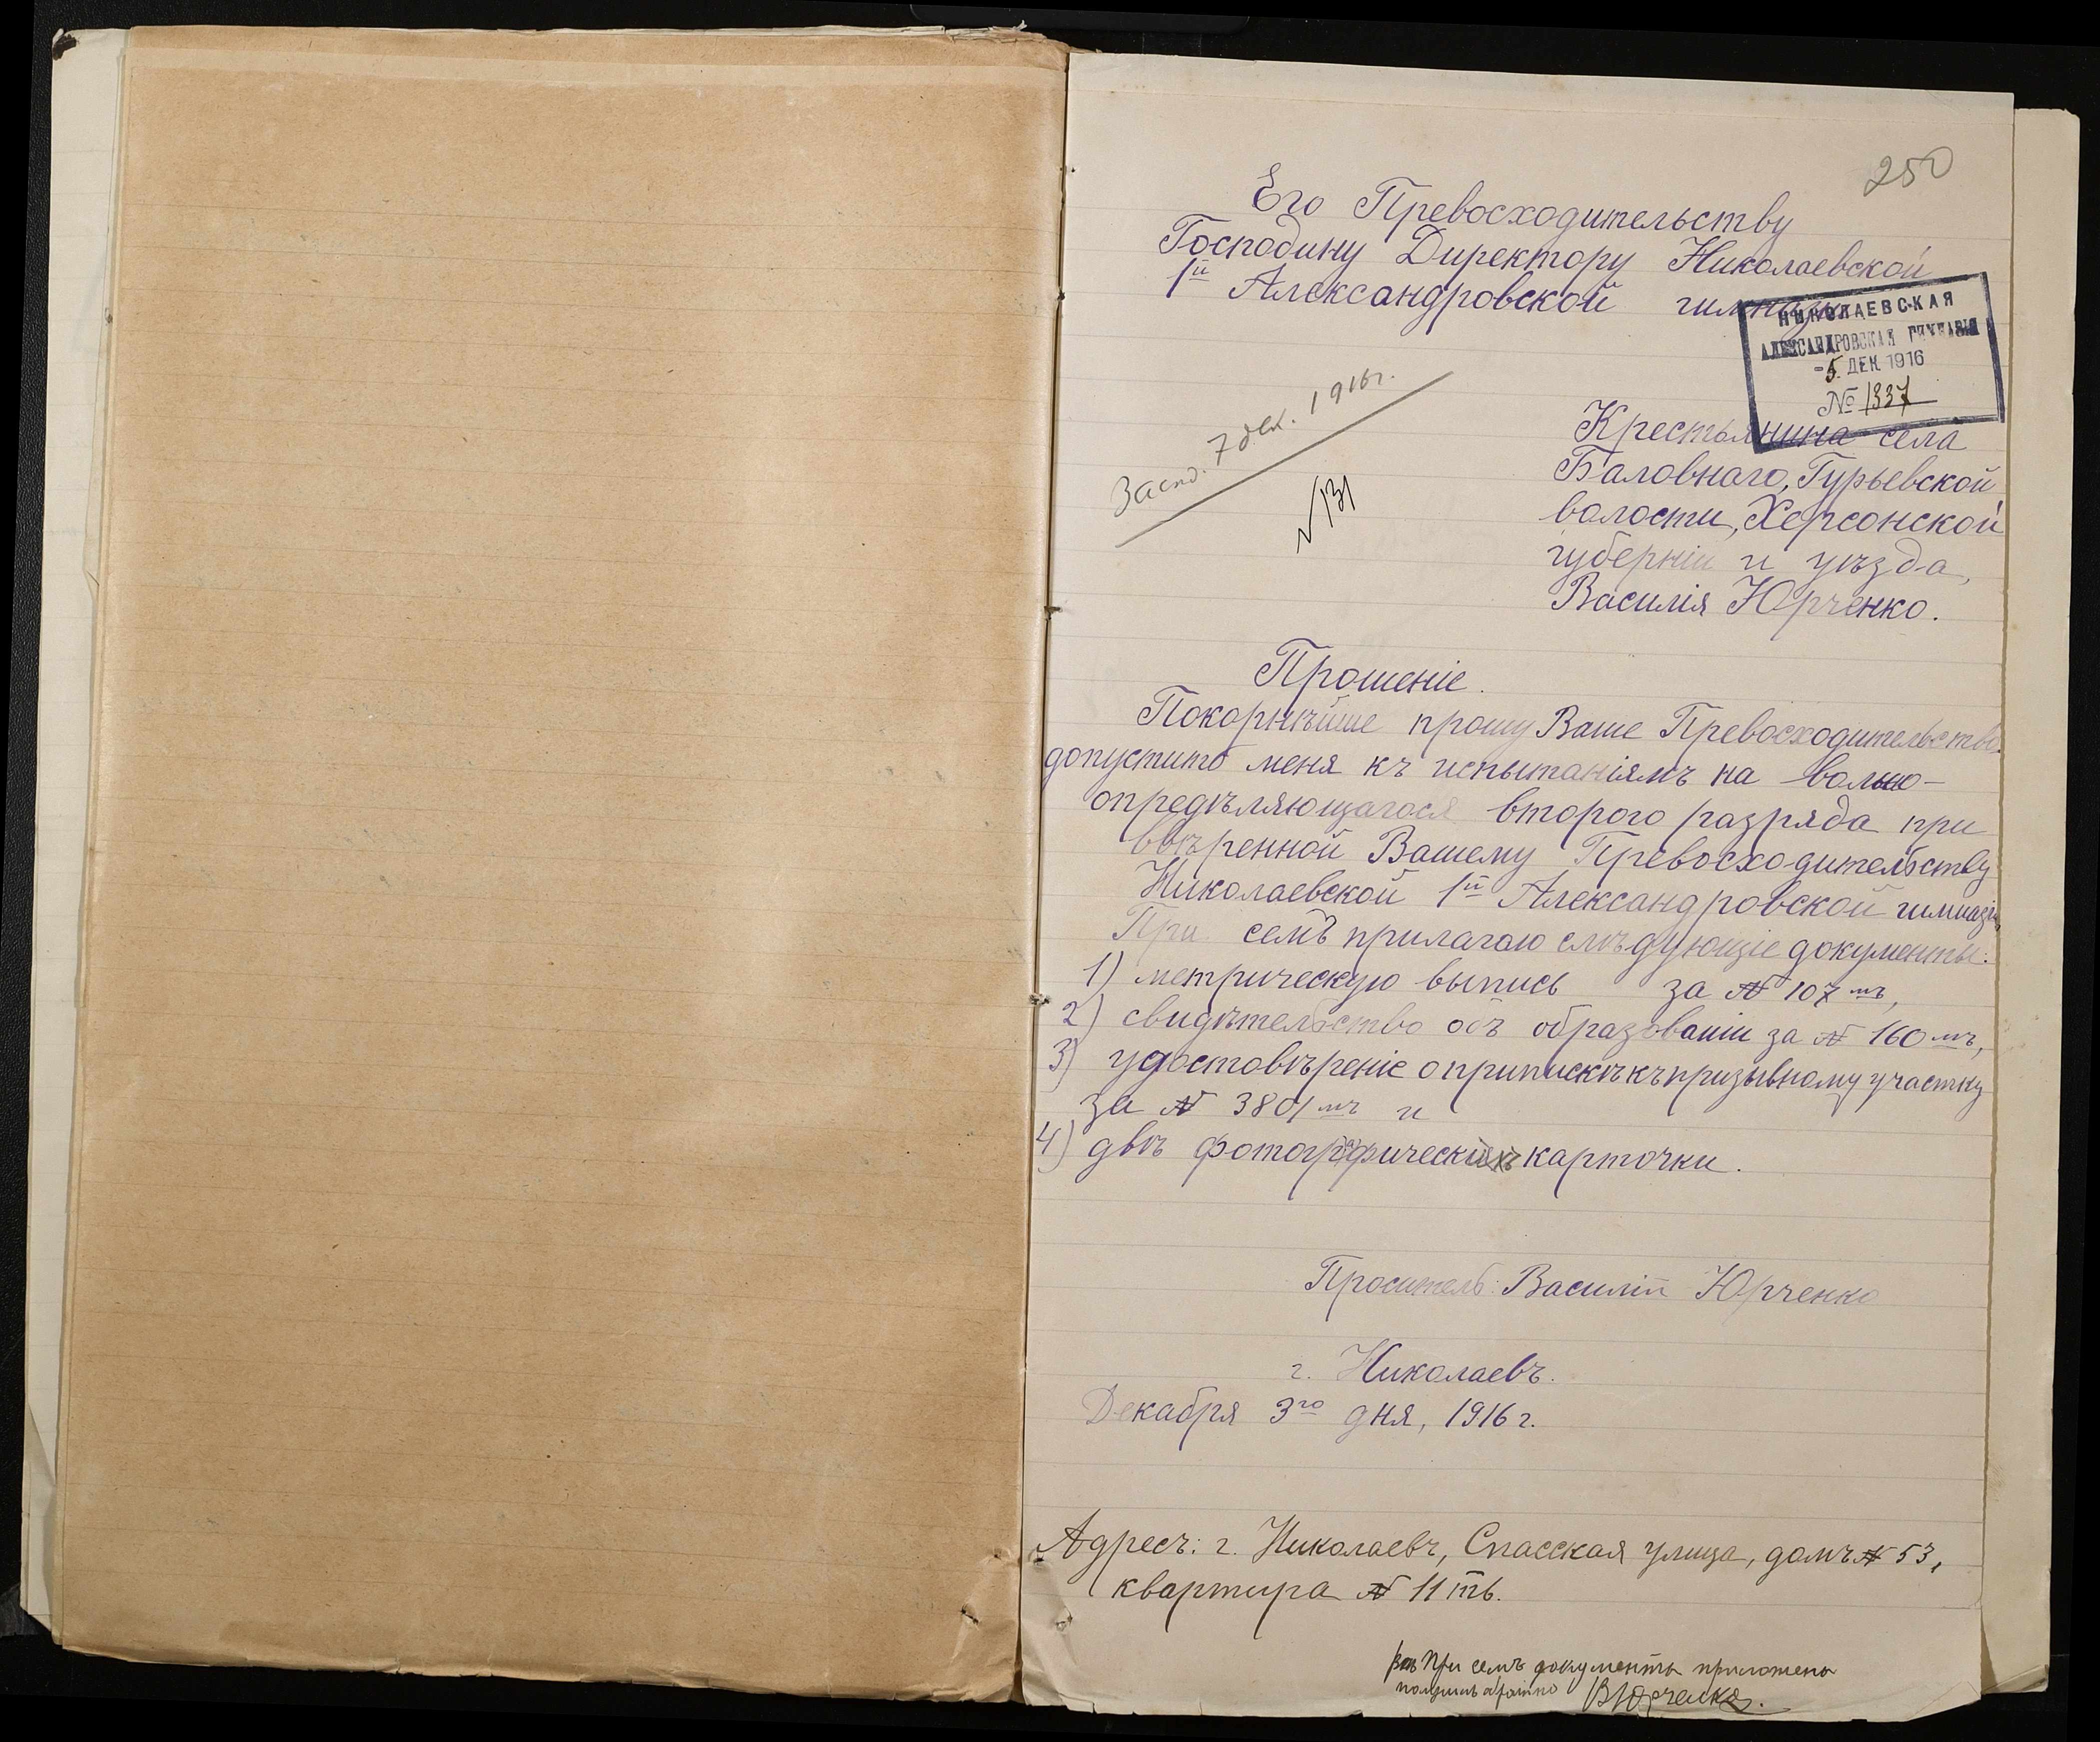 250
Его Превосходительству
Господину Директору Николаевской
1й Александровской гимназіи
НИКОЛАЕВСКАЯ
АЛЕКСАНДРОВСКАЯ ГИМНАЗІЯ
-5. ДЕК. 1916
№ 1337
Засѣд. 7 дек. 1916 г.
№131
Крестьянина села
Баловнаго, Гурьевской
волости, Херсонской
губерніи и уѣзда,
Василія Юрченко.
Прошеніе.
Покорнѣйше прошу Ваше Превосходительство
допустить меня къ испытаніямъ на вольно-
опредѣляющагося второго разряда при
ввѣренной Вашему Превосходительству
Николаевской 1й Александровской гимназіи.
При семъ прилагаю слѣдующіе документы:
1) метрическую выпись за № 107мъ,
2) свидѣтельство объ образованіи за № 160мъ,
3) удостовѣреніе о припискѣ къ призывному участку
за № 3801мъ и
4) двѣ фотографическихъ карточки.
Проситель: Василій Юрченко
г. Николаевъ.
Декабря 3го дня, 1916 г.
Адресъ: г. Николаевъ, Спасская улица, домъ № 53,
квартира № 11ть.
При семъ документы приложены
получилъ обратно ВЮрченко.